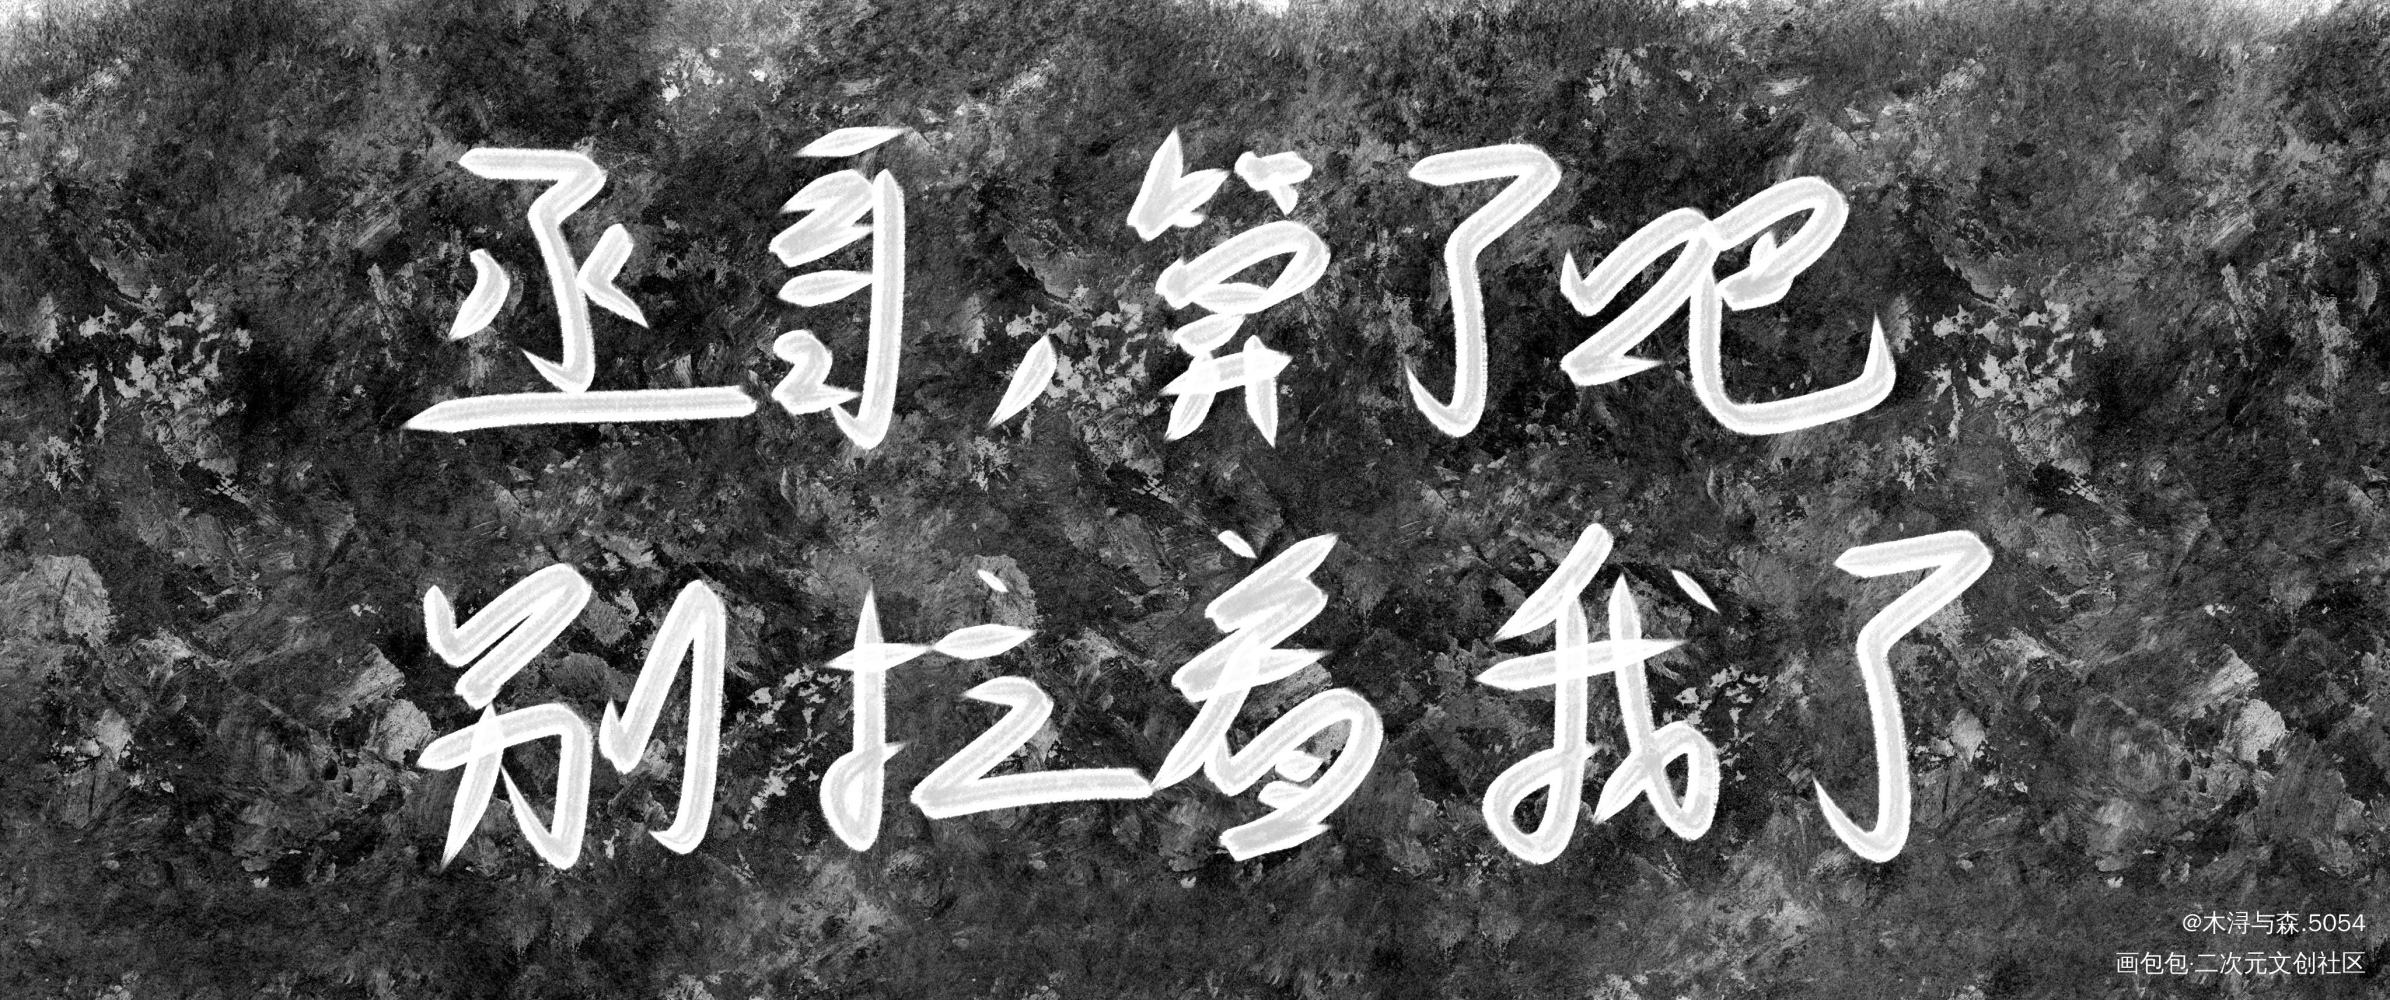 丞哥，算了吧
别拉着我了
@木浔与森.5054
画包包·二次元文创社区